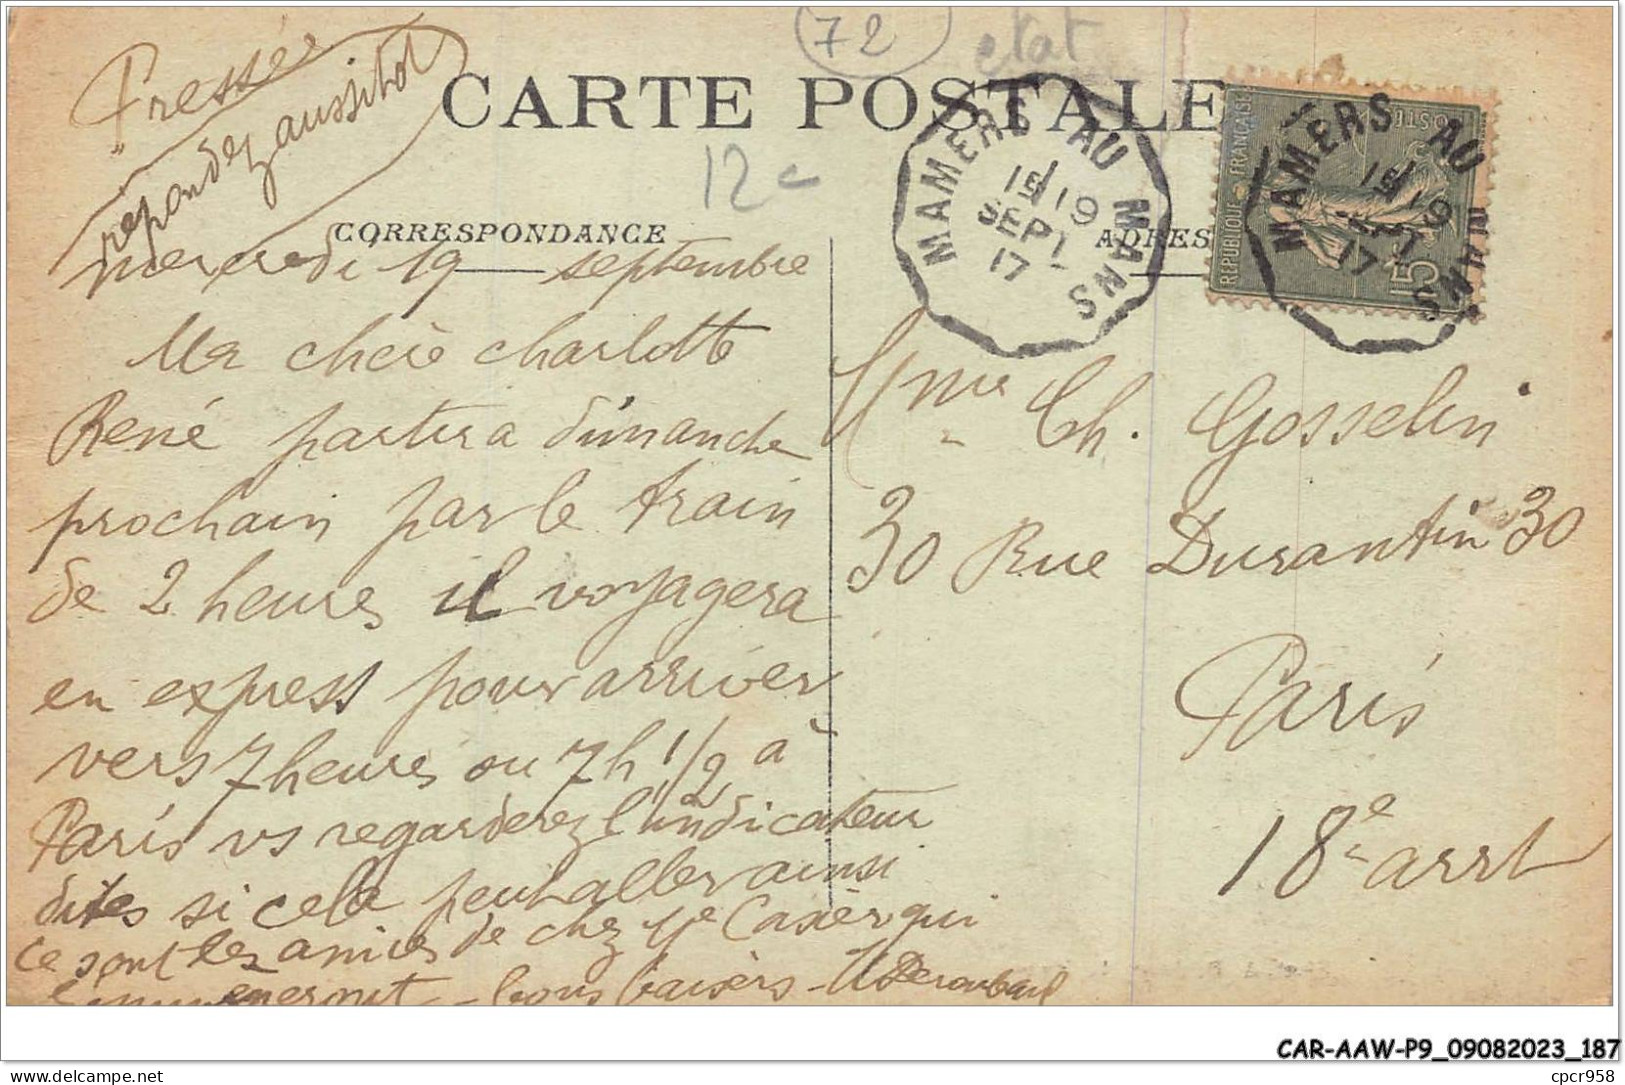 72
etat
Pressée
repondez aussitot
CARTE POSTALE
12 c
CORRESPONDANCE
ADRES
MAMERS AU MANS
15 19
SEPT
17
REPUBLIQUE FRANÇAISE
POSTES
15
MAMERS AU MANS
15 19
SEPT
17
mercredi 19 septembre
Ma chère charlotte
René partira dimanche
prochain par le train
de 2 heures il voyagera
en express pour arriver
vers 7 heures ou 7 h 1/2 à
Paris vs regarderez l'indicateur
dites si cela peut aller ainsi
ce sont les amies de chez Me qui
emmeneront - bons baisers -
Mme Ch. Gosselin
30 Rue Durantin 30
Paris
18e arrt
CAR-AAW-P9_09082023_187
delcampe.net
cpcr958